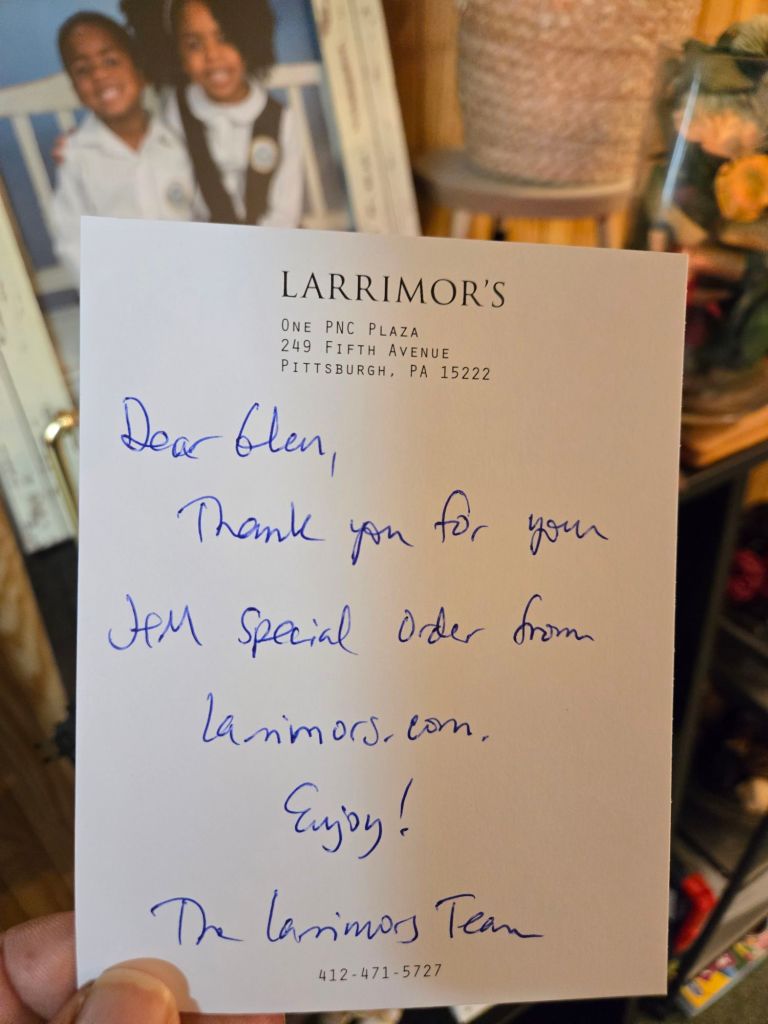 LARRIMOR'S
ONE PNC PLAZA
249 FIFTH AVENUE
PITTSBURGH, PA 15222
Dear Glen,
Thank you for your
JHM Special Order from
Larrimors.com.
Enjoy!
The Larrimors Team
412-471-5727